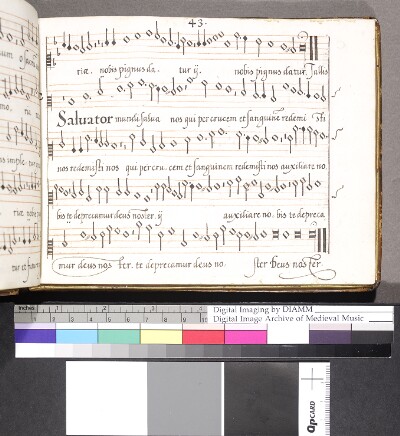 43.
riæ. nobis pignus da. tur ij. nobis pignus datur. Tallis
Salvator mundi salva nos qui per crucem et sanguinē redemi sti
nos redemisti nos qui per cru. cem et sanguinem redemisti nos auxiliare no.
bis te deprecamur deus noster. ij auxiliare no. bis te depreca
mur deus nos ter. te deprecamur deus no. ster Deus noster
inches
Digital Imaging by DIAMM
Digital Image Archive of Medieval Music
QPCARD